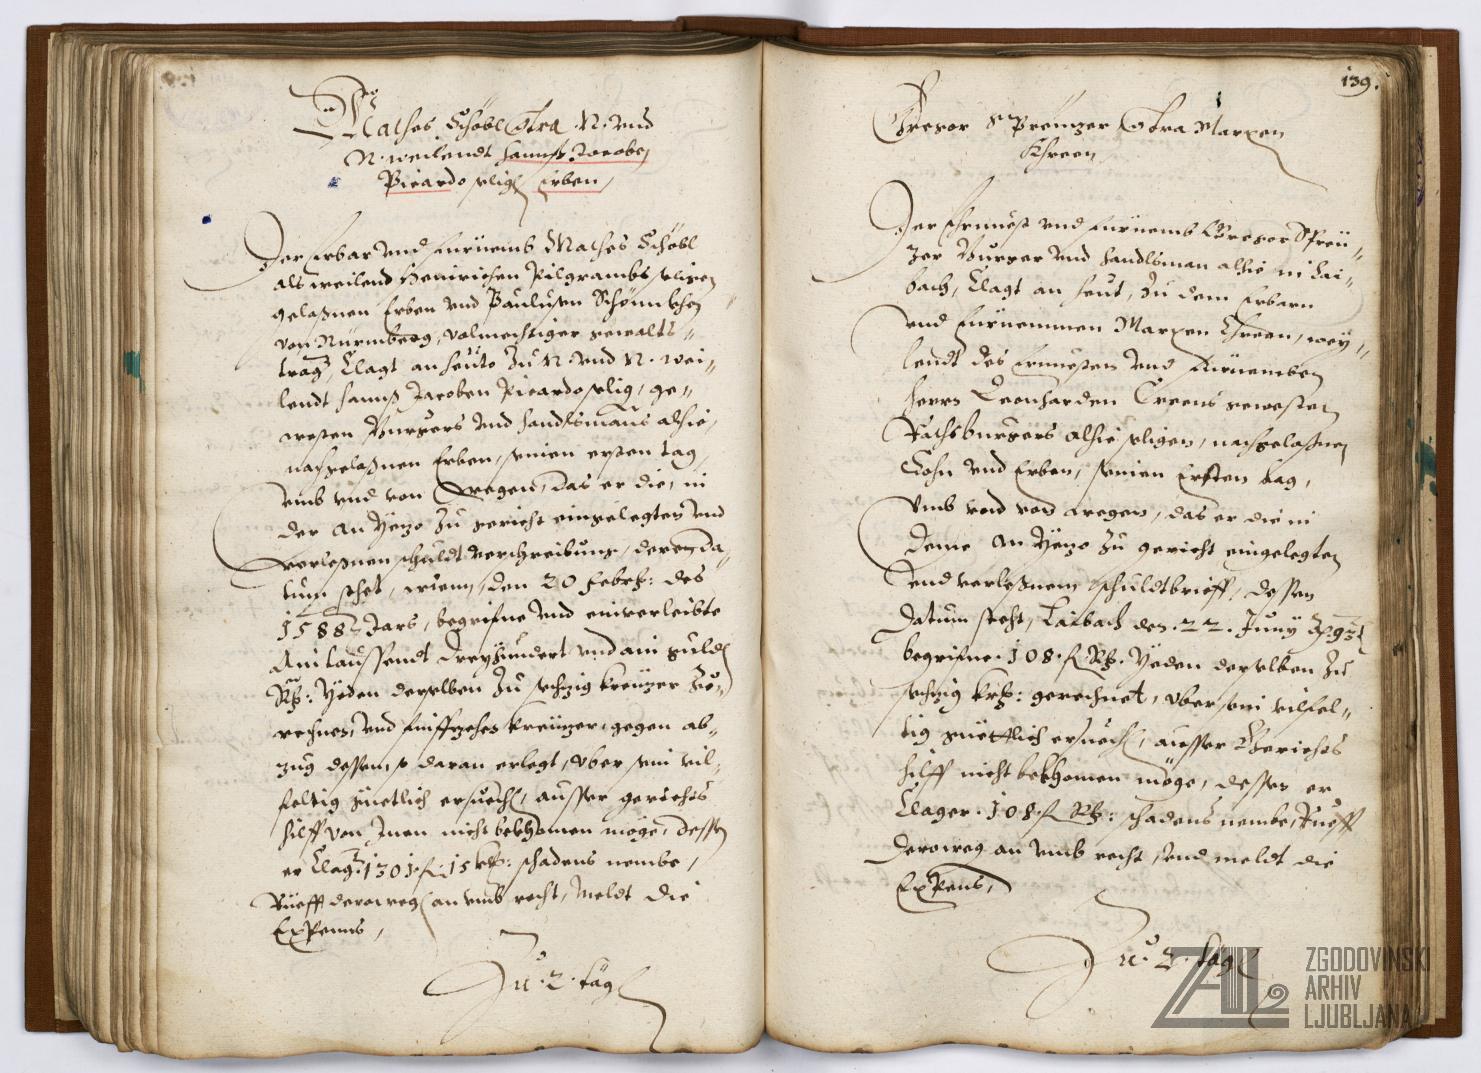 Mathes Schöbl Contra N. vnd
N. weilendt Hannß Jacoben
Picardo seligen Erben,
Der Erbar vnd Fürnemb Mathes Schöbl
als weilend Heinrichen Pilgrambs seligen
gelaßnen Erben vnd Paulusen
von Nürmberg, volmechtiger gewalts-
trager, Clagt an heuto Zu N. vnd N. wei-
lendt Hannß Jacoben Picardo selig, ge-
westen Burgers vnd Handlsmans alhie,
nachgelaßnen Erben, seinen ersten tag,
vmb vnd von wegen, das er die, in
der an Yezo Zu gericht eingelegten vnd
verleßnen schuldtverschreibung, deren da-
tum stehet, Wienn, den 20 Febr: des
1588 Jars, begrifne vnd einverleibte
Ain taussendt Dreyhundert vnd ain guld
Rh: Yeden derselben Zu sechzig kreuzer Zu
rechnen, vnd funffzehen kreuzer, gegen ab-
zug dessen, so daran erlegt, vber sein vil-
feltig güetlich ersuechen, ausser gerichts
hilff von Inen nicht bekhomen möge, dessen
er Clagt 1301 fl: 15 kr: schadens nembe,
Rüefft derowegen an vmb recht, Meldt die
Expenns,
Zu. 2. täg
139.
Gregor Spreuzer Contra Marxen
Khreen
Der Ehrnuest vnd Fürnemb Gregor Spreü-
zer Burger vnd Handlsman alhie in Lai-
bach, Clagt an heut, Zu dem Erbarn
vnd Fürnemmen Marxen Chreen, wey-
lendt des Ernuesten vnd Fürnemben
Herrn Leonharden Creens gewesten
Rathsburgers alhie seligen, nachgelaßnen
Sohn vnd Erben, seinen Ersten tag,
vmb vnd von wegen, das er die in
deme an Yezo Zu gericht eingelegten
vnd verleßnem schuldtbrieff, dessen
Datum steht, Laibach den .22. Juny
begrifne .108. fl. Rh. Yeden derselben Zu
sechzig khr: gerechnet, vber sein vilfel-
tig güettlich ersuechen, ausser Gerichts
hilff nicht bekhomen möge, dessen er
Clager .108. fl Rh: schadens nembe, Rüefft
derowegen an vmb recht, vnd meldt die
Expens,
Zu. 2. täg
ZGODOVINSKI
ARHIV
LJUBLJANA